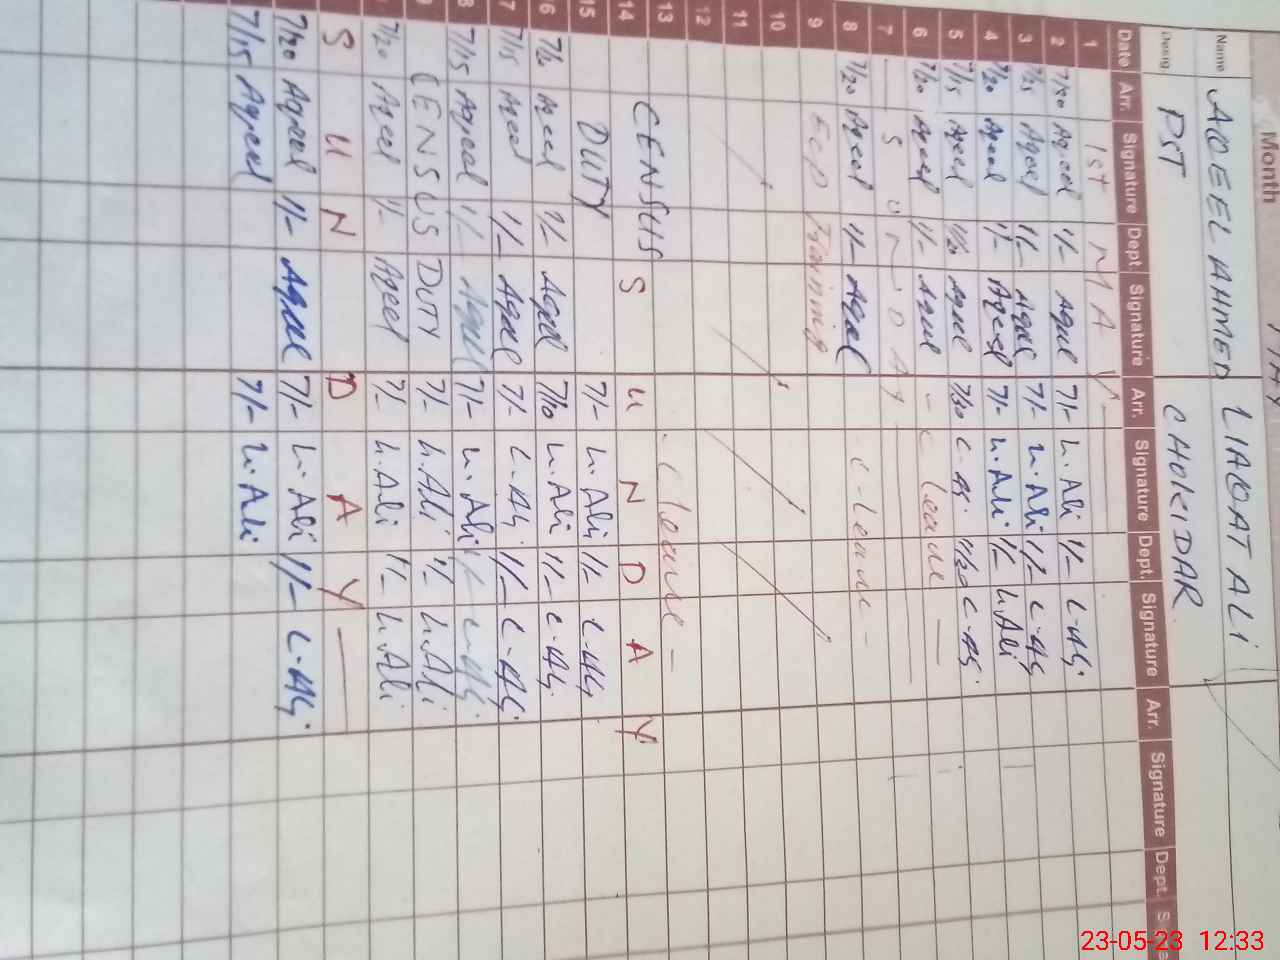 Month MAY
Name AQEEL AHMED LIAQAT ALI
Desig. PST CHOKIDAR
Date Arr. Signature Dept. Signature Arr. Signature Dept. Signature Arr. Signature Dept.
1 1st MAY
2 7/30 Aqeel 1/- Aqeel 7/- L.Ali 1/-
3 7/25 Aqeel 1/- Aqeel 7/- L.Ali 1/-
4 7/20 Aqeel 1/- Aqeel 7/- L.Ali 1/- L.Ali
5 7/15 Aqeel 11/30 Aqeel 7/30 11/30
6 7/20 Aqeel 1/- Aqeel - C Leave -
7 SUNDAY
8 7/20 Aqeel 1/- Aqeel - C - Leave -
9 Training
10
11
12
13 C Leave -
14 CENSUS SUNDAY
15 DUTY 7/- L.Ali 1/-
16 7/20 Aqeel 1/- Aqeel 7/10 L.Ali 1/-
17 7/15 Aqeel 1/- Aqeel 7/- 1/-
8 7/15 Aqeel 1/- Aqeel 7/- L.Ali 1/-
CENSUS DUTY 7/- L.Ali 1/- L.Ali
7/20 Aqeel 1/- Aqeel 7/- L.Ali 1/- L.Ali
SUNDAY
7/20 Aqeel 1/- Aqeel 7/- L.Ali 1/-
7/15 Aqeel 7/- L.Ali
23-05-23 12:33